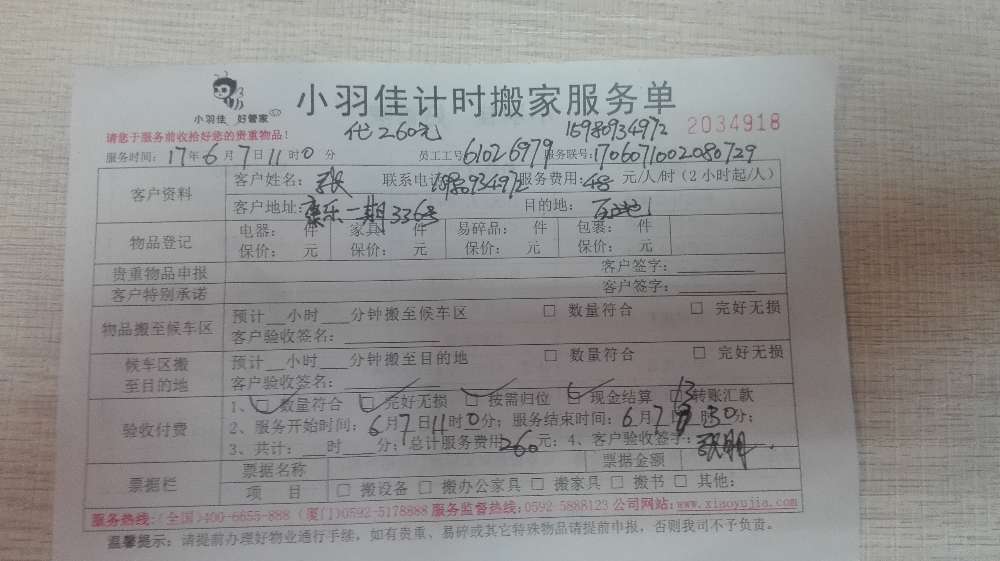 小羽佳计时搬家服务单
小羽佳 好管家
代260元 15980934972 2034918
请您于服务前收拾好您的贵重物品!
服务时间: 17年6月7日11时0分 员工工号61026979 服务联号:1706071002080729
客户资料 客户姓名: 张 联系电话15980934972 服务费用: 48 元/人/时(2小时起/人)
客户地址: 乐二期336号 目的地:
物品登记 电器: 件 家具: 件 易碎品: 件 包裹: 件
保价: 元 保价: 元 保价: 元 保价: 元
贵重物品申报 客户签字:
客户特别承诺 客户签字:
物品搬至候车区 预计__小时___分钟搬至候车区 □ 数量符合 □ 完好无损
客户验收签名:
候车区搬至目的地 预计__小时___分钟搬至目的地 □ 数量符合 □ 完好无损
客户验收签名:
验收付费 1、□ 数量符合 □ 完好无损 □ 按需归位 □ 现金结算 □ 转账汇款
2、服务开始时间: 6月7日11时0分; 服务结束时间: 6月7日13时30分;
3、共计: ___时___分; 总计服务费用260元; 4、客户验收签字:
票据栏 票据名称 票据金额
项 目 □ 搬设备 □ 搬办公家具 □ 搬家具 □ 搬书 □ 其他:
服务热线:(全国)400-6655-888 (厦门)0592-5178888 服务监督热线:0592-5888123 公司网站:www.xiaoyujia.com
温馨提示: 请提前办理好物业通行手续, 如有贵重、易碎或其它特殊物品请提前申报, 否则我司不予负责。